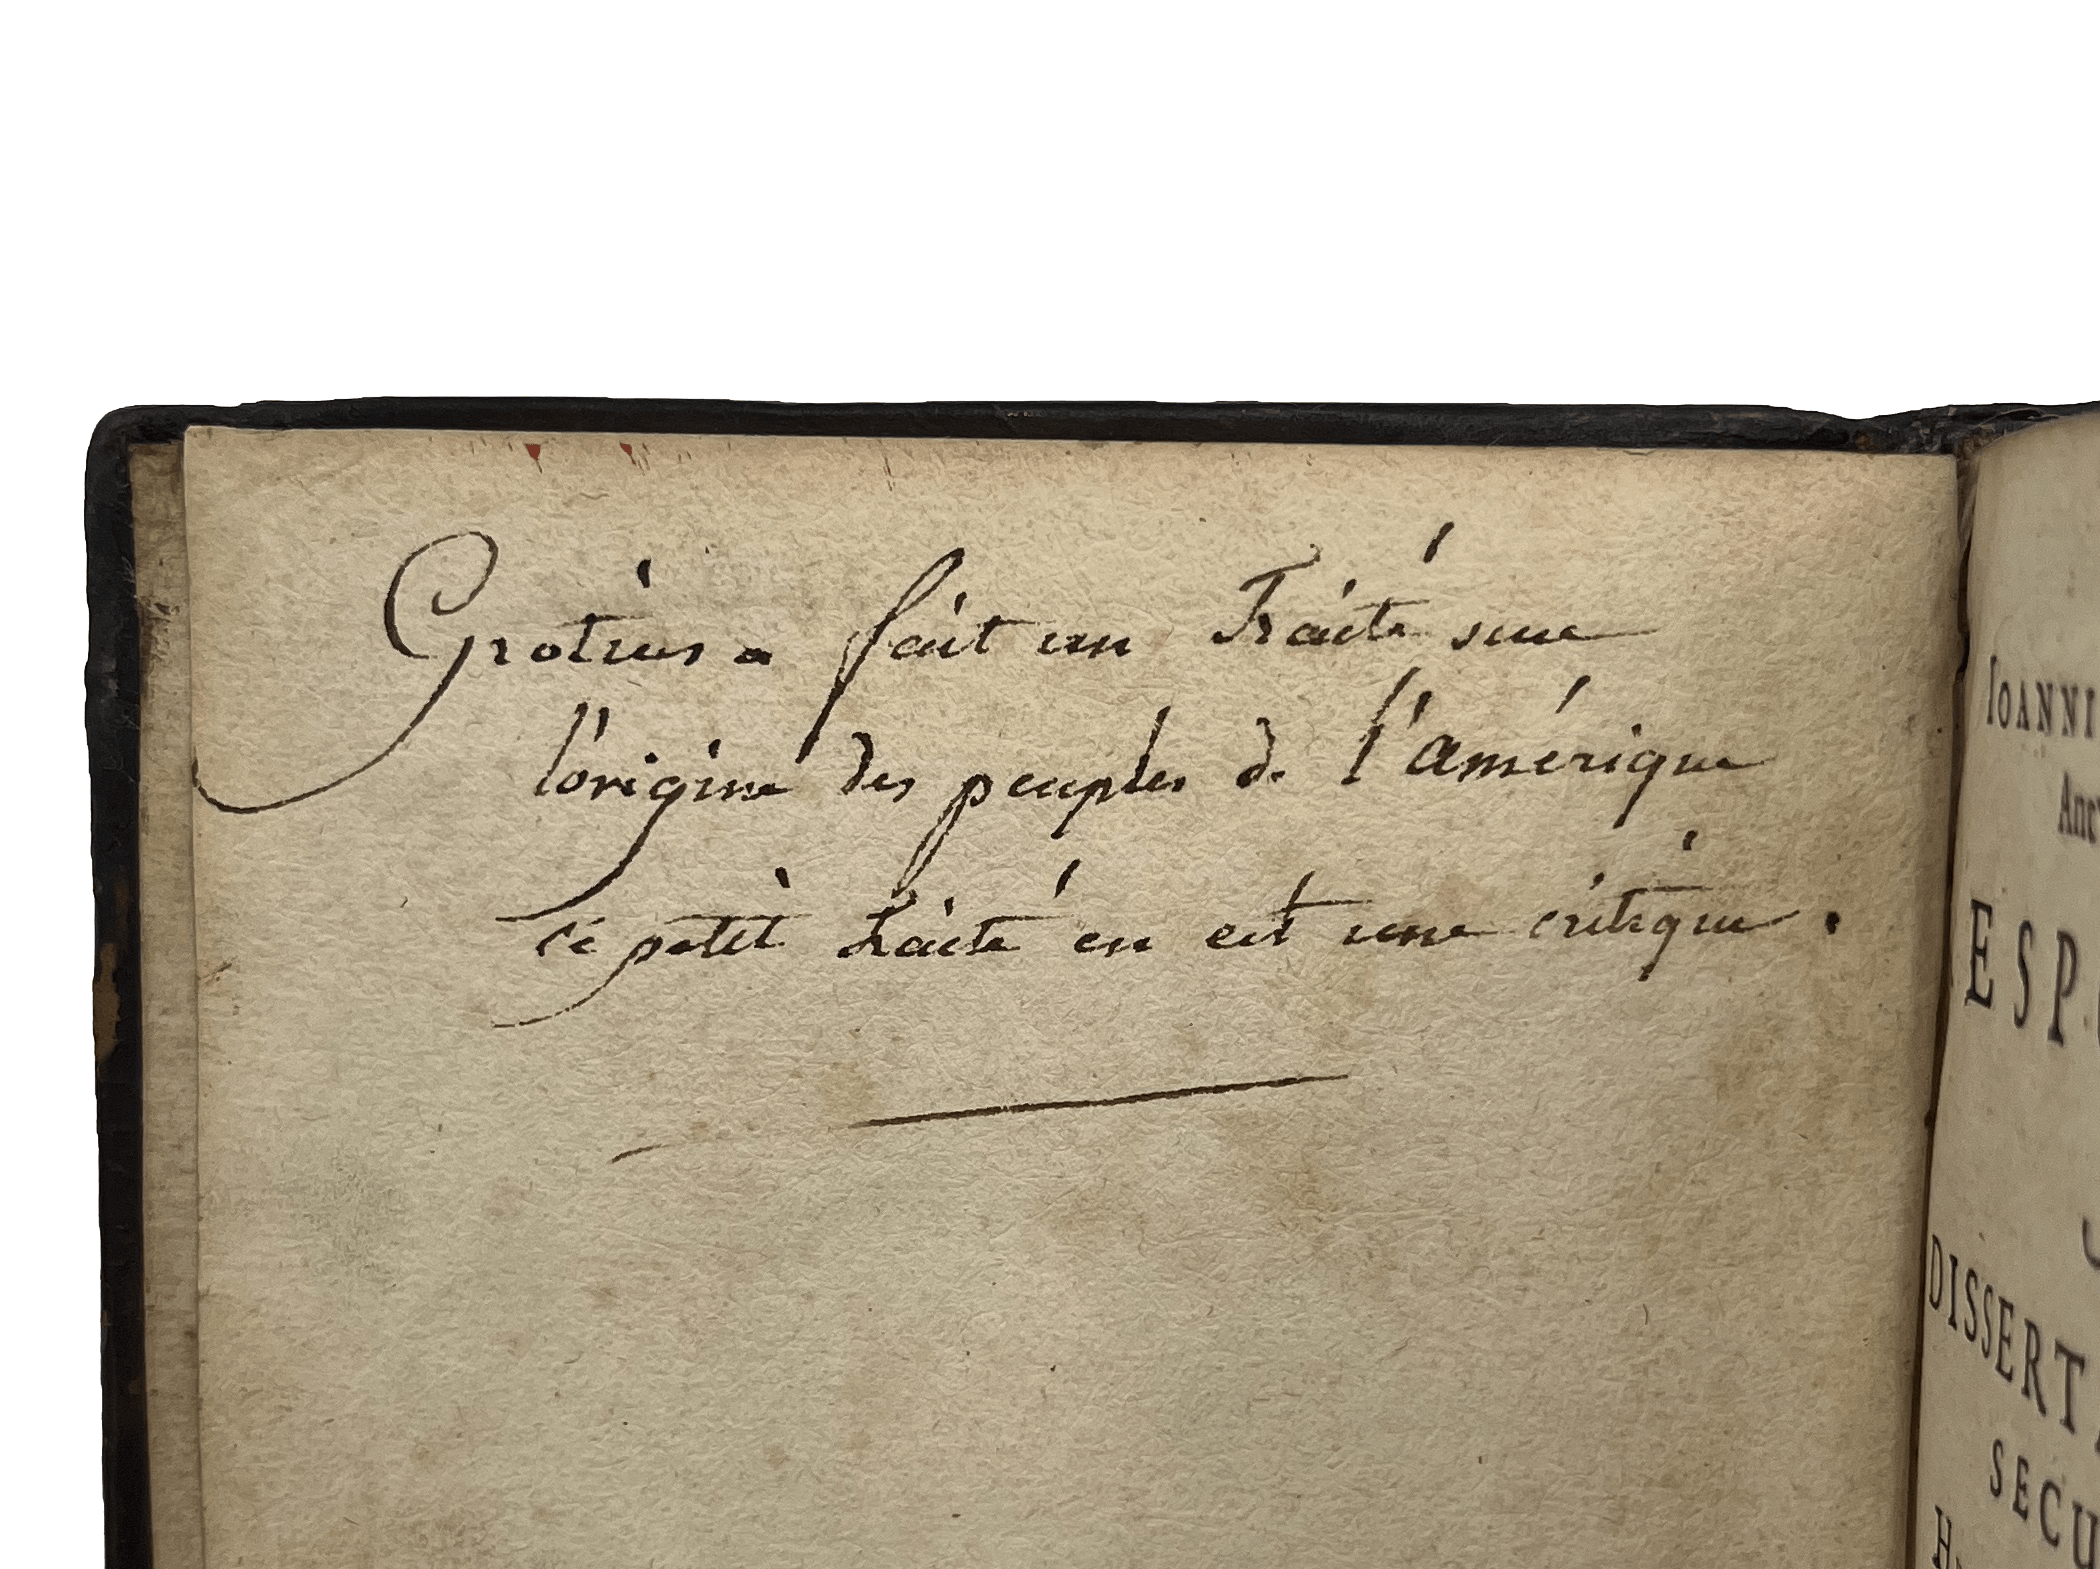 Grotius a fait un Traité sur
l'origine des peuples de l'amérique
ce petit traité en est une critique.
IOANNI
ESP
DISSERT
SECU